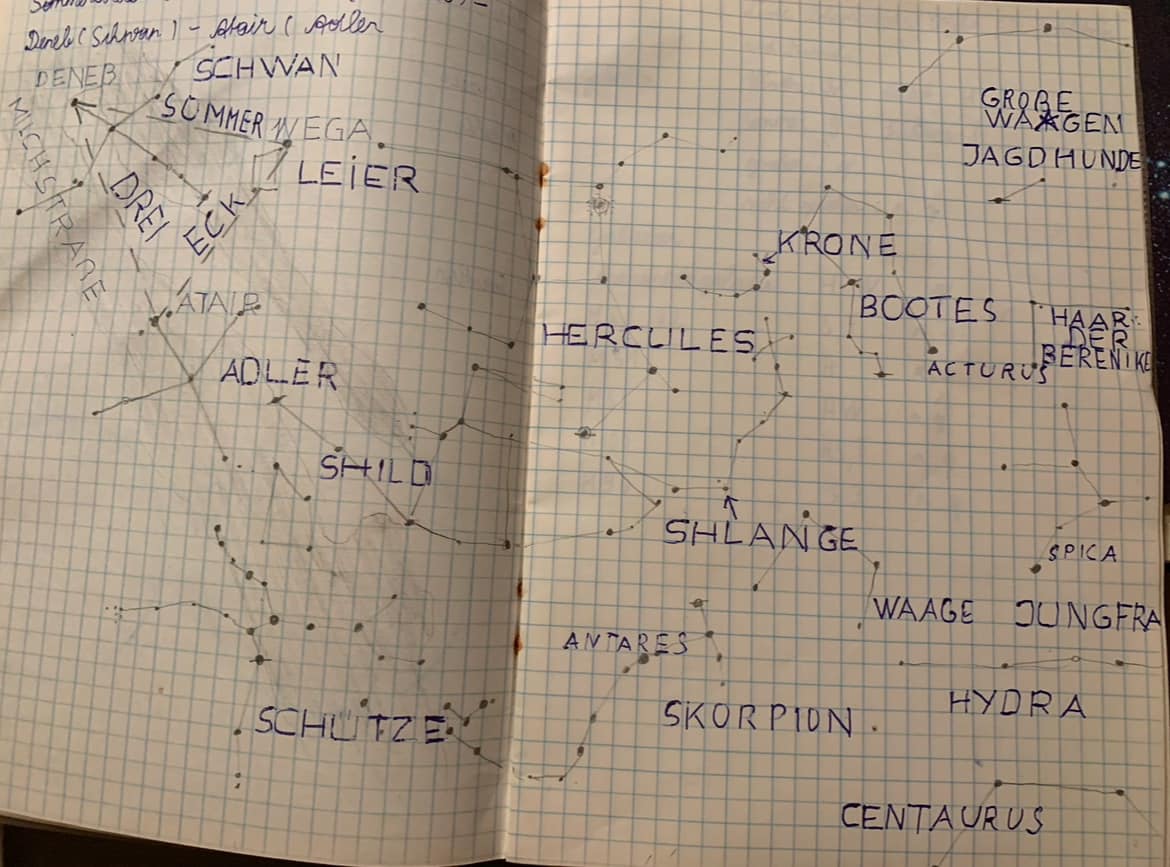 Deneb (Schwan) - Atair (Adler
DENEB
SCHWAN
SOMMER
WEGA
MILCHSTRAßE
DREI
ECK
LEiER
ATAIR
ADLER
SHILD
SCHÜTZE
GROßE
WAAGEN
JAGDHUNDE
KRONE
BOOTES
HERCULES
ACTURUS
HAAR
DER
BERENIKE
SHLANGE
SPICA
WAAGE
JUNGFRA
ANTARES
SKORPION
HYDRA
CENTAURUS